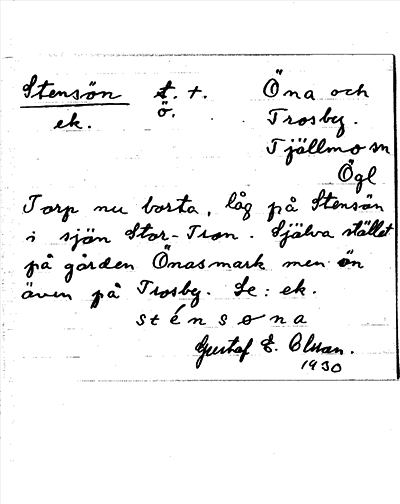 Stensön t. +. Öna och
ek. ö. Trosby.
Tjällmo sn
Ögl
Torp nu borta, låg på Stensön
i sjön Stor-Tron. Själva stället
på gården Önasmark men ön
även på Trosby. Se: ek.
sténsøna
Gustaf E. Olsson.
1930